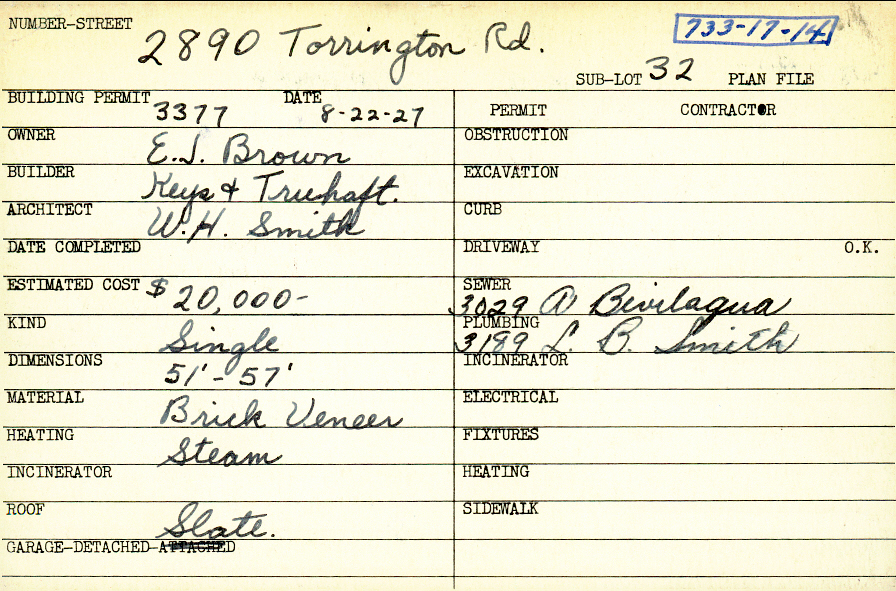 NUMBER-STREET 2890 Torrington Rd. 733-17-14
SUB-LOT 32 PLAN FILE
BUILDING PERMIT 3377 DATE 8-22-27
OWNER E.J. Brown
BUILDER Keys & Truehaft.
ARCHITECT W.H. Smith
DATE COMPLETED
ESTIMATED COST $20,000-
KIND Single
DIMENSIONS 51'-57'
MATERIAL Brick Veneer
HEATING Steam
INCINERATOR
ROOF Slate.
GARAGE-DETACHED-ATTACHED
PERMIT CONTRACTOR
OBSTRUCTION
EXCAVATION
CURB
DRIVEWAY O.K.
SEWER 3029 A Bevilaqua
PLUMBING 3189 L. B. Smith
INCINERATOR
ELECTRICAL
FIXTURES
HEATING
SIDEWALK